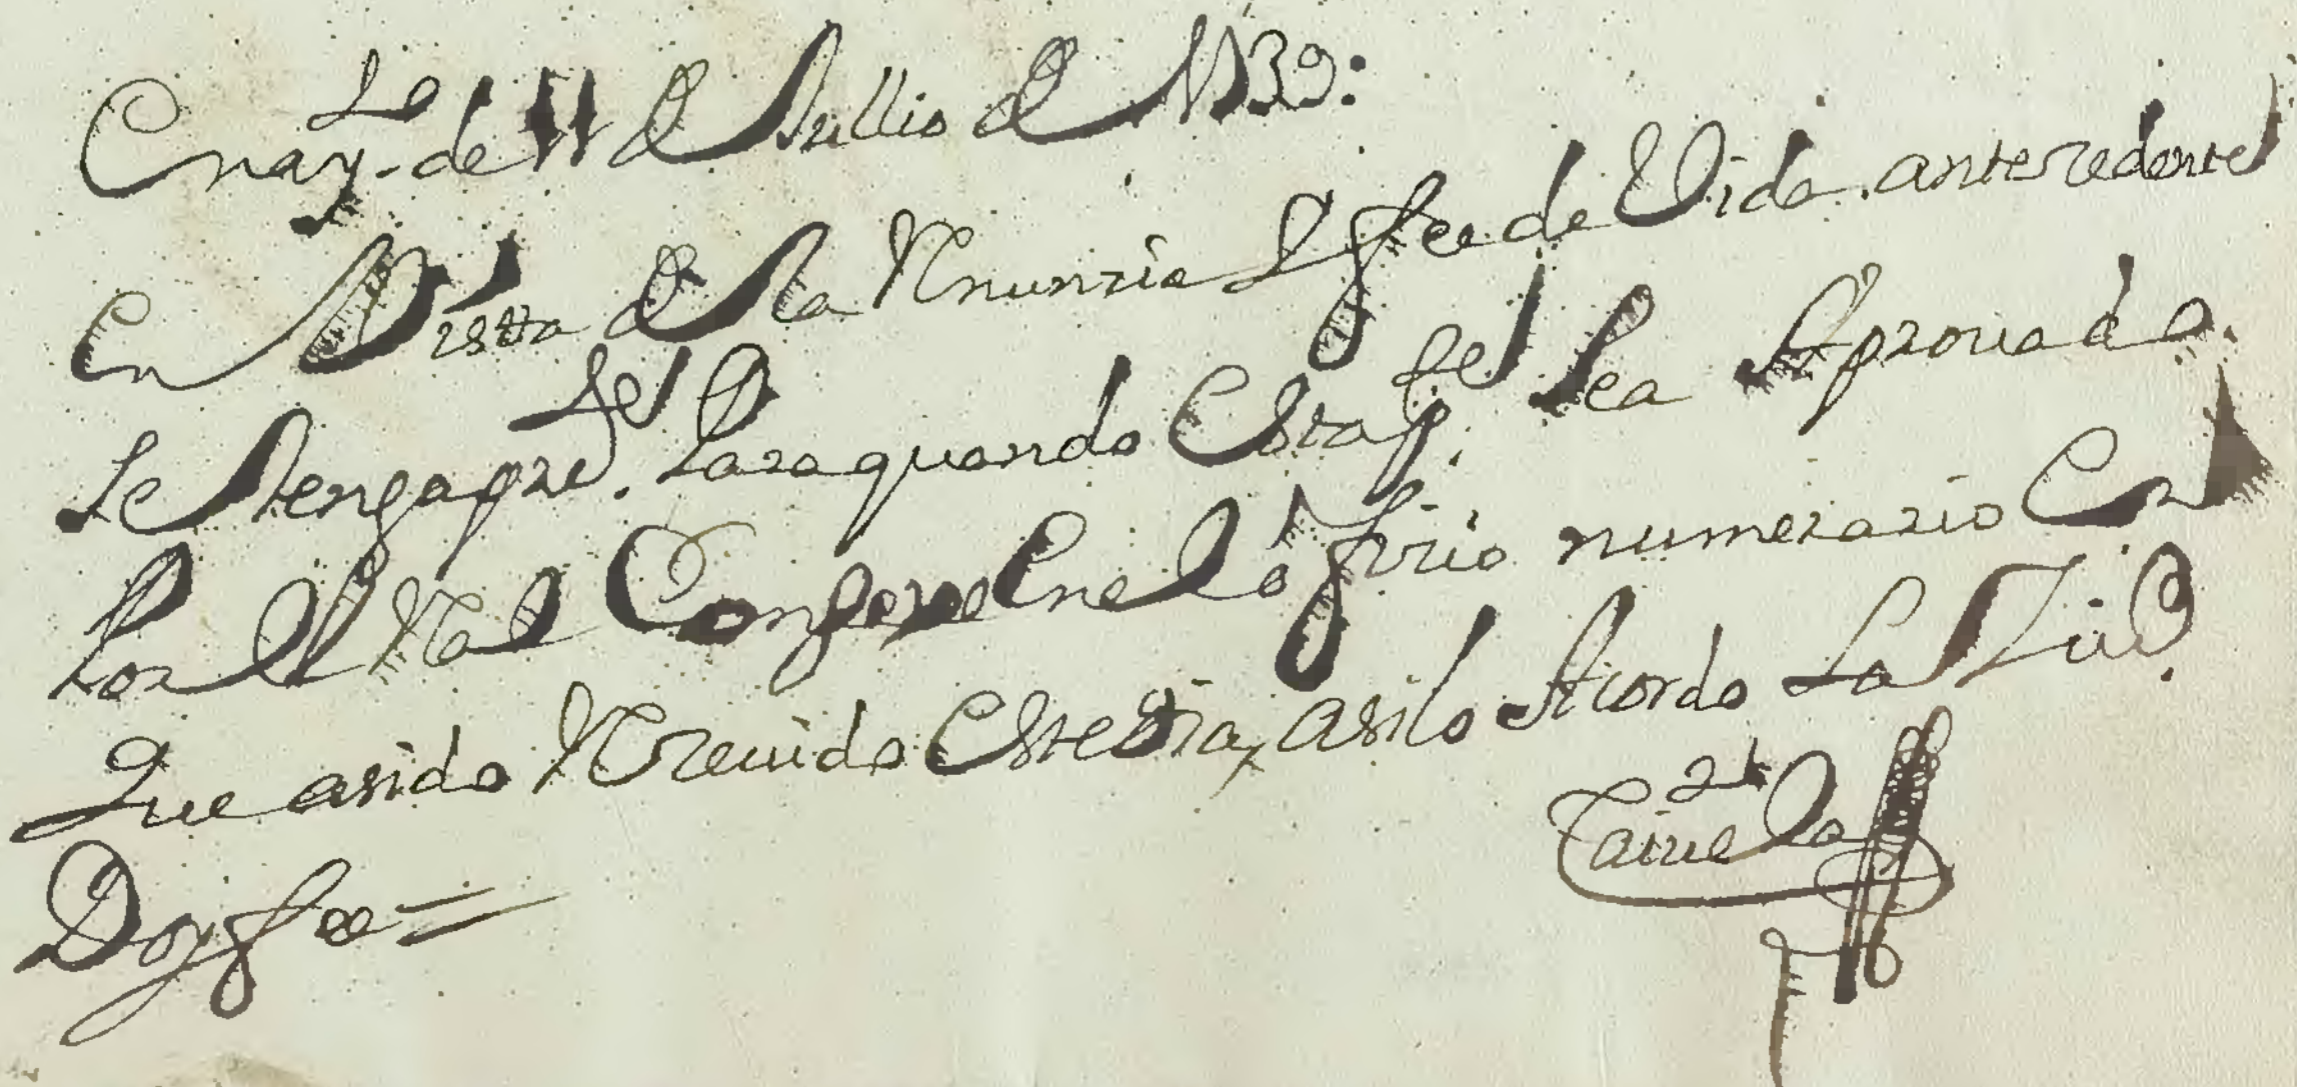 En ay.to de 11 de Jullio de 1739:
En Vista de la Rnunzia y fee de Vida antezedentes
se tenga pres.te Para quando Esta Ap.
sea Aprouada
Por el Rl Consexo En el ofizio numerario En
Que a sido Rzeuido Este dia, asi lo Acordo La Ziud.
Doy fee =